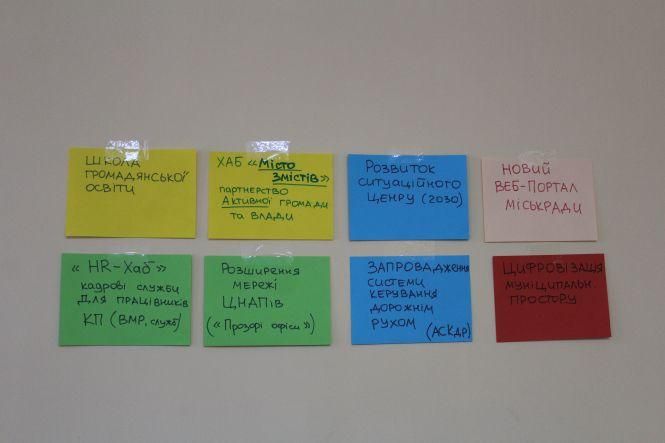 ШКОЛА
ГРОМАДЯНСЬКОЇ
ОСВІТИ
ХАБ «Місто
Змістів»
партнерство
Активної громади
та влади
Розвиток
ситуаційного
ценру (2030)
НОВИЙ
ВЕБ-ПОРТАЛ
МІСЬКРАДИ
« HR-Хаб"
кадрові служби
для працівників
КП (ВМР, служб)
Розширення
мережі
ЦНАПів
(« Прозорі офіси »)
ЗАПРОВАДження
системи
керування
дорожнім
рухом
(АСКДР)
Цифровізація
муніципальн.
простору